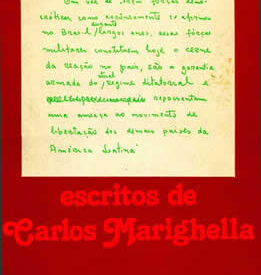 Em vez de serem forças demo-
cráticas como erroneamente se afirmou
durante
no Brasil largos anos, essas forças
militares constituem hoje o cerne
da reação no país, são a garantia
atual
armada do regime ditatorial e
representam
uma ameaça ao movimento de
libertação dos demais países da
América Latina
escritos de
Carlos Marighella